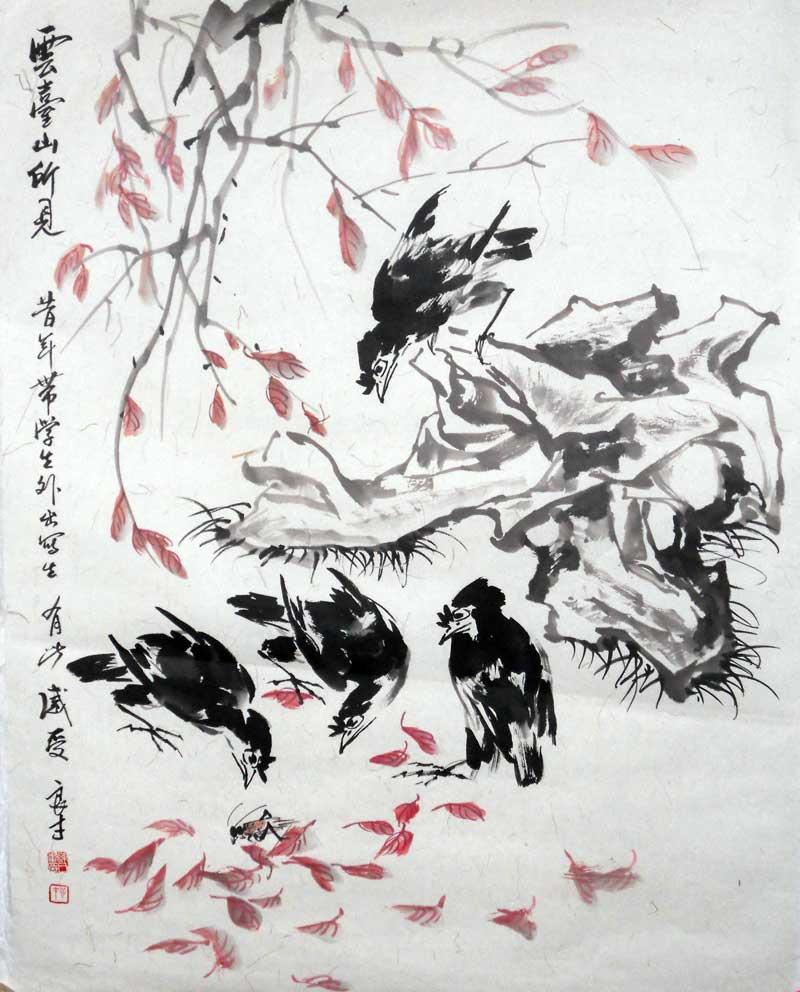 雲臺山所見
昔年带学生外出写生 有此感受 良才